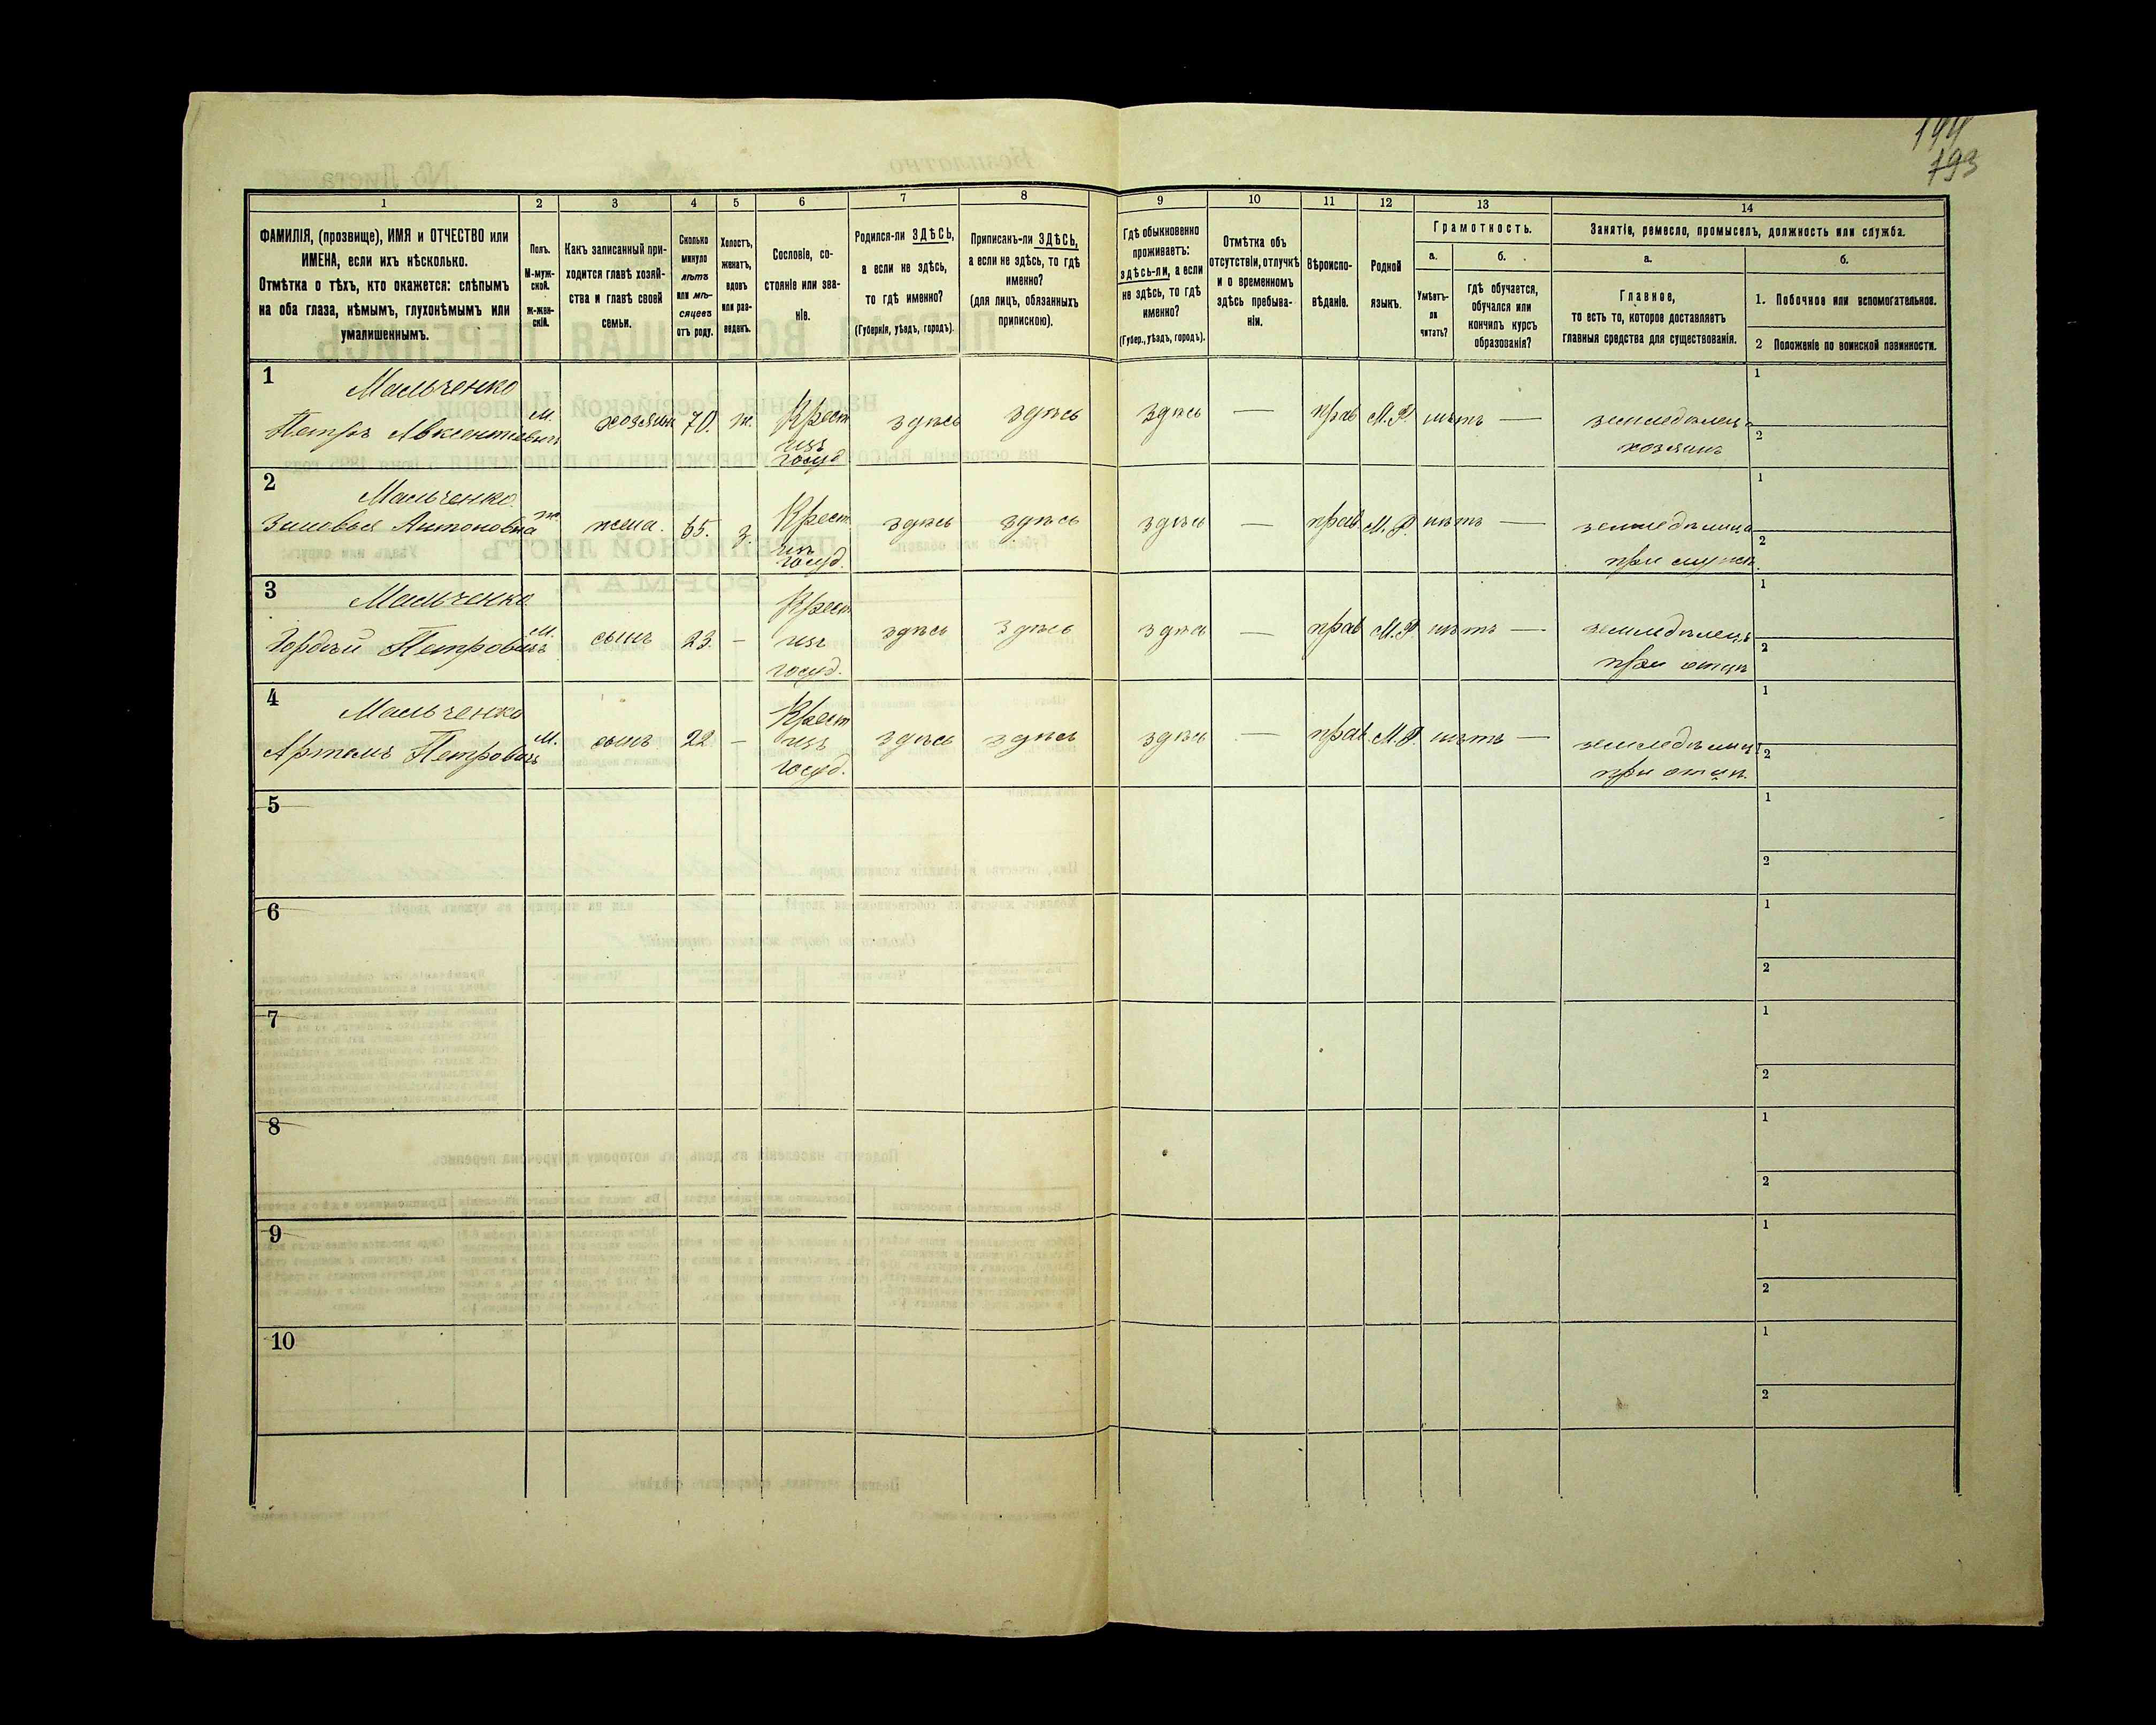 194
193
1 2 3 4 5 6 7 8 9 10 11 12 13 14
ФАМИЛІЯ, (прозвище), ИМЯ и ОТЧЕСТВО или
ИМЕНА, если ихъ нѣсколько.
Отмѣтка о тѣхъ, кто окажется: слѣпымъ
на оба глаза, нѣмымъ, глухонѣмымъ или
умалишеннымъ.
Полъ.
М-муж-
ской.
ж-жен-
скій.
Какъ записанный при-
ходится главѣ хозяй-
ства и главѣ своей
семьи.
Сколько
минуло
лѣтъ
или мѣ-
сяцевъ
отъ роду.
Холостъ,
женатъ,
вдовъ
или раз-
веденъ.
Сословіе, со-
стояніе или зва-
ніе.
Родился-ли ЗДѢСЬ,
а если не здѣсь,
то гдѣ именно?
(Губернія, уѣздъ, городъ).
Приписанъ-ли ЗДѢСЬ,
а если не здѣсь, то гдѣ
именно?
(для лицъ, обязанныхъ
припискою).
Гдѣ обыкновенно
проживаетъ:
здѣсь-ли, а если
не здѣсь, то гдѣ
именно?
(Губер., уѣздъ, городъ).
Отмѣтка объ
отсутствіи, отлучкѣ
и о временномъ
здѣсь пребыва-
ніи.
Вѣроиспо-
вѣданіе.
Родной
языкъ.
Грамотность.
а.
Умѣетъ-
ли
читать?
б.
гдѣ обучается,
обучался или
кончилъ курсъ
образованія?
Занятіе, ремесло, промыселъ, должность или служба.
а.
Главное,
то есть то, которое доставляетъ
главныя средства для существованія.
б.
1. Побочное или вспомогательное.
2 Положеніе по воинской повинности.
1 Мальченко
Петръ Авксентіевичъ М. хозяинъ 70. ж. Крест
изъ
госуд здѣсь здѣсь здѣсь — прав М.Р. нѣтъ — земледѣлецъ
хозяинъ 1
2
2 Мальченко.
Зиновья Антоновна ж. жена. 65. з. Крест
изъ
госуд. здѣсь здѣсь здѣсь — прав. М.Р. нѣтъ — земледѣлица
при мужѣ. 1
2
3 Мальченко
Гордѣй Петровичъ М. сынъ 23. — Крест
изъ
госуд. здѣсь здѣсь здѣсь — прав М.Р. нѣтъ — земледѣлецъ
при отцѣ 1
2
4 Мальченко
Артемъ Петровичъ М. сынъ 22 — Крест
изъ
госуд. здѣсь здѣсь здѣсь — прав. М.Р. нѣтъ —
при отцѣ. 1
2
5 1
2
6 1
2
7 1
2
8 1
2
9 1
2
10 1
2